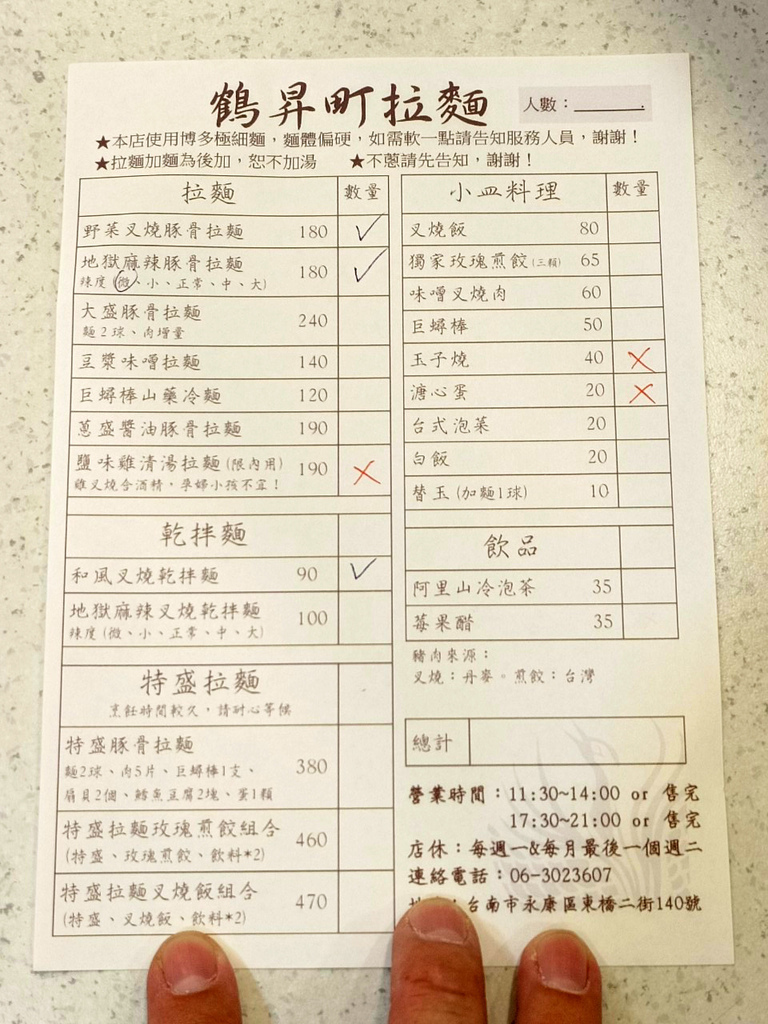 鶴昇町拉麵
人數：
★本店使用博多極細麵，麵體偏硬，如需軟一點請告知服務人員，謝謝！
★拉麵加麵為後加，恕不加湯 ★不蔥請先告知，謝謝！
拉麵 數量
野菜叉燒豚骨拉麵 180 ✓
地獄麻辣豚骨拉麵 180 ✓
辣度（微、小、正常、中、大）
大盛豚骨拉麵 240
麵2球、肉增量
豆漿味噌拉麵 140
巨蟳棒山藥冷麵 120
蔥盛醬油豚骨拉麵 190
鹽味雞清湯拉麵(限內用) 190 ✗
雞叉燒含酒精，孕婦小孩不宜！
乾拌麵
和風叉燒乾拌麵 90 ✓
地獄麻辣叉燒乾拌麵 100
辣度（微、小、正常、中、大）
特盛拉麵
烹飪時間較久，請耐心等候
特盛豚骨拉麵 380
麵2球、肉5片、巨蟳棒1支、
扇貝2個、鱈魚豆腐2塊、蛋1顆
特盛拉麵玫瑰煎餃組合 460
(特盛、玫瑰煎餃、飲料*2)
特盛拉麵叉燒飯組合 470
(特盛、叉燒飯、飲料*2)
小皿料理 數量
叉燒飯 80
獨家玫瑰煎餃(三顆) 65
味噌叉燒肉 60
巨蟳棒 50
玉子燒 40 ✗
溏心蛋 20 ✗
台式泡菜 20
白飯 20
替玉(加麵1球) 10
飲品
阿里山冷泡茶 35
莓果醋 35
豬肉來源：
叉燒：丹麥。煎餃：台灣
總計
營業時間：11:30~14:00 or 售完
17:30~21:00 or 售完
店休：每週一&每月最後一個週二
連絡電話：06-3023607
：台南市永康區東橋二街140號